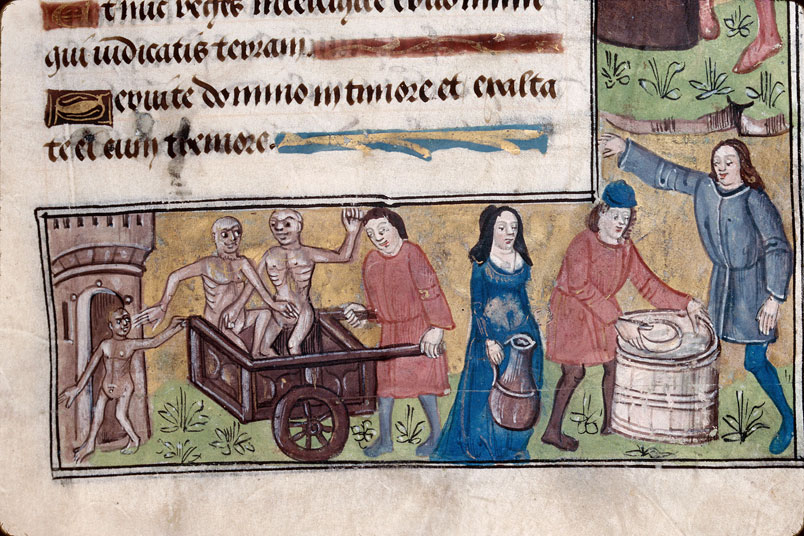 Et nuc reges intelligite erudimini
qui iudicatis terram.
Seruite domino in timore et exulta
te ei cum tremore.